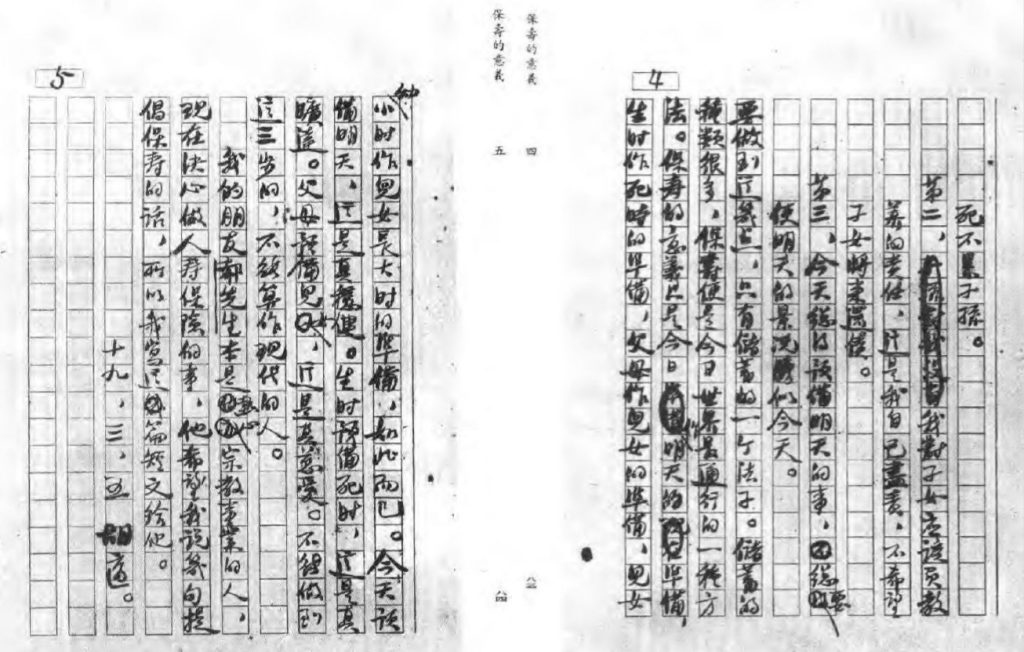 4
死不累子孫。
第二，我對子女应該負教
养的責任，这是我自己盡責，不希望
子女將來還債。
第三，今天總得預備明天的事，總要
使明天的景況勝似今天。
要做到这幾点，只有儲蓄的一个法子。儲蓄的
種類很多，保壽便是今日世界最通行的一種方
法。保壽的意義只是今日作明天的準備，
生时作死時的準備，父母作兒女的準備，兒女
保壽的意義 四 六三
保壽的意義 五 六四
5
幼小时作兒女長大时的準備，如此而已。今天預
備明天，这是真穩健。生时預備死时，这是真
曠達。父母預備兒女，这是真慈愛。不能做到
这三步的，不能算作現代的人。
我的朋友郝先生本是熱心宗教事業的人，
現在決心做人壽保險的事，他希望我說幾句提
倡保壽的話，所以我寫这篇短文給他。
十九，三，五 胡適。